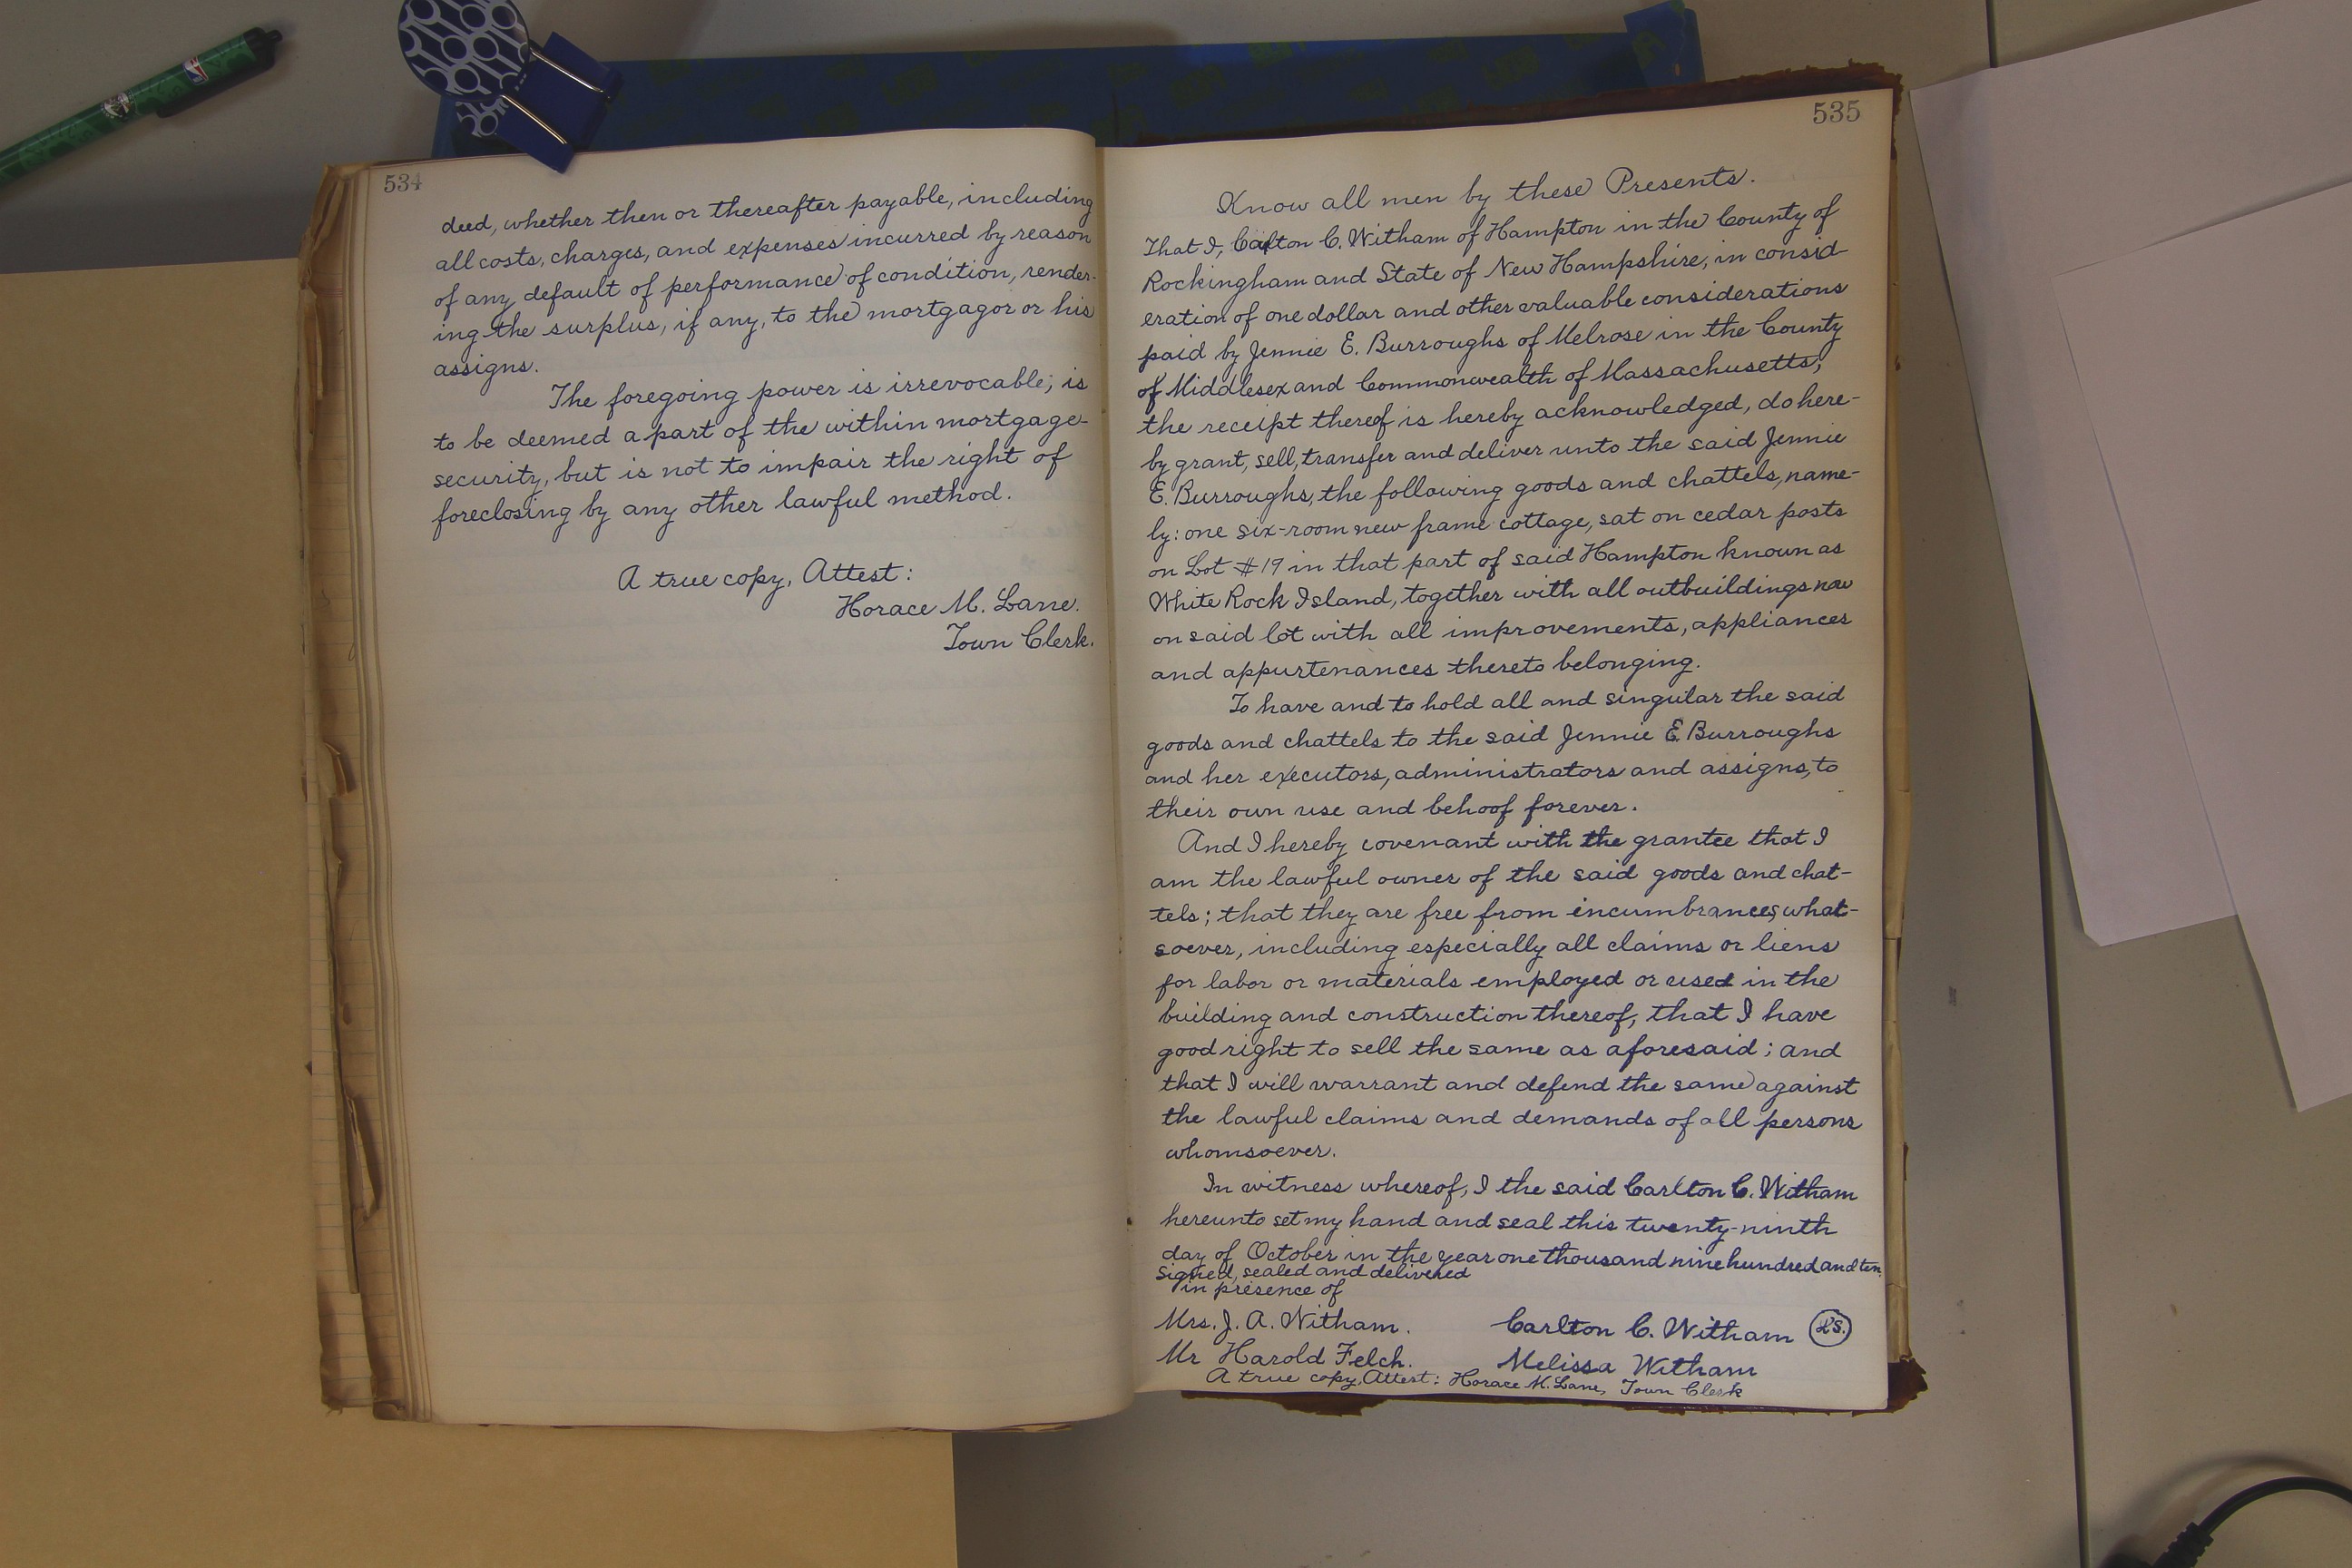 534
deed, whether then or thereafter payable, including
all costs, charges, and expenses incurred by reason
of any default of performance of condition, render-
ing the surplus, if any, to the mortgagor or his
assigns.
The foregoing power is irrevocable, is
to be deemed a part of the within mortgage-
security, but is not to impair the right of
foreclosing by any other lawful method.
A true copy, Attest:
Horace M. Lane.
Town Clerk.
535
Know all men by these Presents.
That I, Carlton C. Witham of Hampton in the County of
Rockingham and State of New Hampshire, in consid-
eration of one dollar and other valuable considerations
paid by Jennie E. Burroughs of Melrose in the County
of Middlesex and Commonwealth of Massachusetts,
the receipt thereof is hereby acknowledged, do here-
by grant, sell, transfer and deliver unto the said Jennie
E. Burroughs, the following goods and chattels, name-
ly: one six-room new frame cottage, sat on cedar posts
on Lot #19 in that part of said Hampton known as
White Rock Island, together with all outbuildings now
on said lot with all improvements, appliances
and appurtenances thereto belonging.
To have and to hold all and singular the said
goods and chattels to the said Jennie E. Burroughs
and her executors, administrators and assigns, to
their own use and behoof forever.
And I hereby covenant with the grantee that I
am the lawful owner of the said goods and chat-
tels; that they are free from incumbrances, what-
soever, including especially all claims or liens
for labor or materials employed or used in the
building and construction thereof, that I have
good right to sell the same as aforesaid; and
that I will warrant and defend the same against
the lawful claims and demands of all persons
whomsoever.
In witness whereof, I the said Carlton C. Witham
hereunto set my hand and seal this twenty-ninth
day of October in the year one thousand nine hundred and ten.
Signed, sealed and delivered
in presence of
Mrs. J. A. Witham. Carlton C. Witham L.S.
Mr Harold Felch. Melissa Witham
A true copy, Attest: Horace M. Lane, Town Clerk